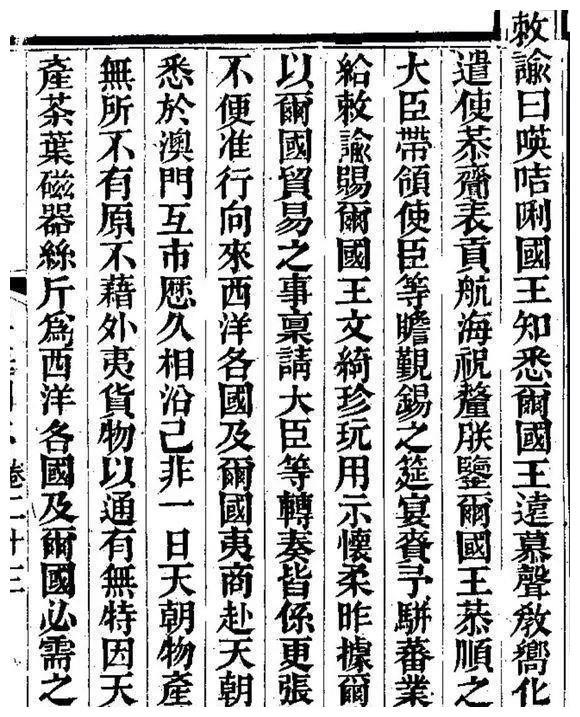 敕諭曰暎咭唎國王知悉爾國王遠慕聲教嚮化
遣使恭齎表貢航海祝釐朕鑒爾國王恭順之
大臣帶領使臣等瞻覲錫之筵宴賚予駢蕃業
給敕諭賜爾國王文綺珍玩用示懷柔昨據爾
以爾國貿易之事稟請大臣等轉奏皆係更張
不便准行向來西洋各國及爾國夷商赴天朝
悉於澳門互市歷久相沿已非一日天朝物產
無所不有原不藉外夷貨物以通有無特因天
產茶葉磁器絲斤為西洋各國及爾國必需之
卷二十三